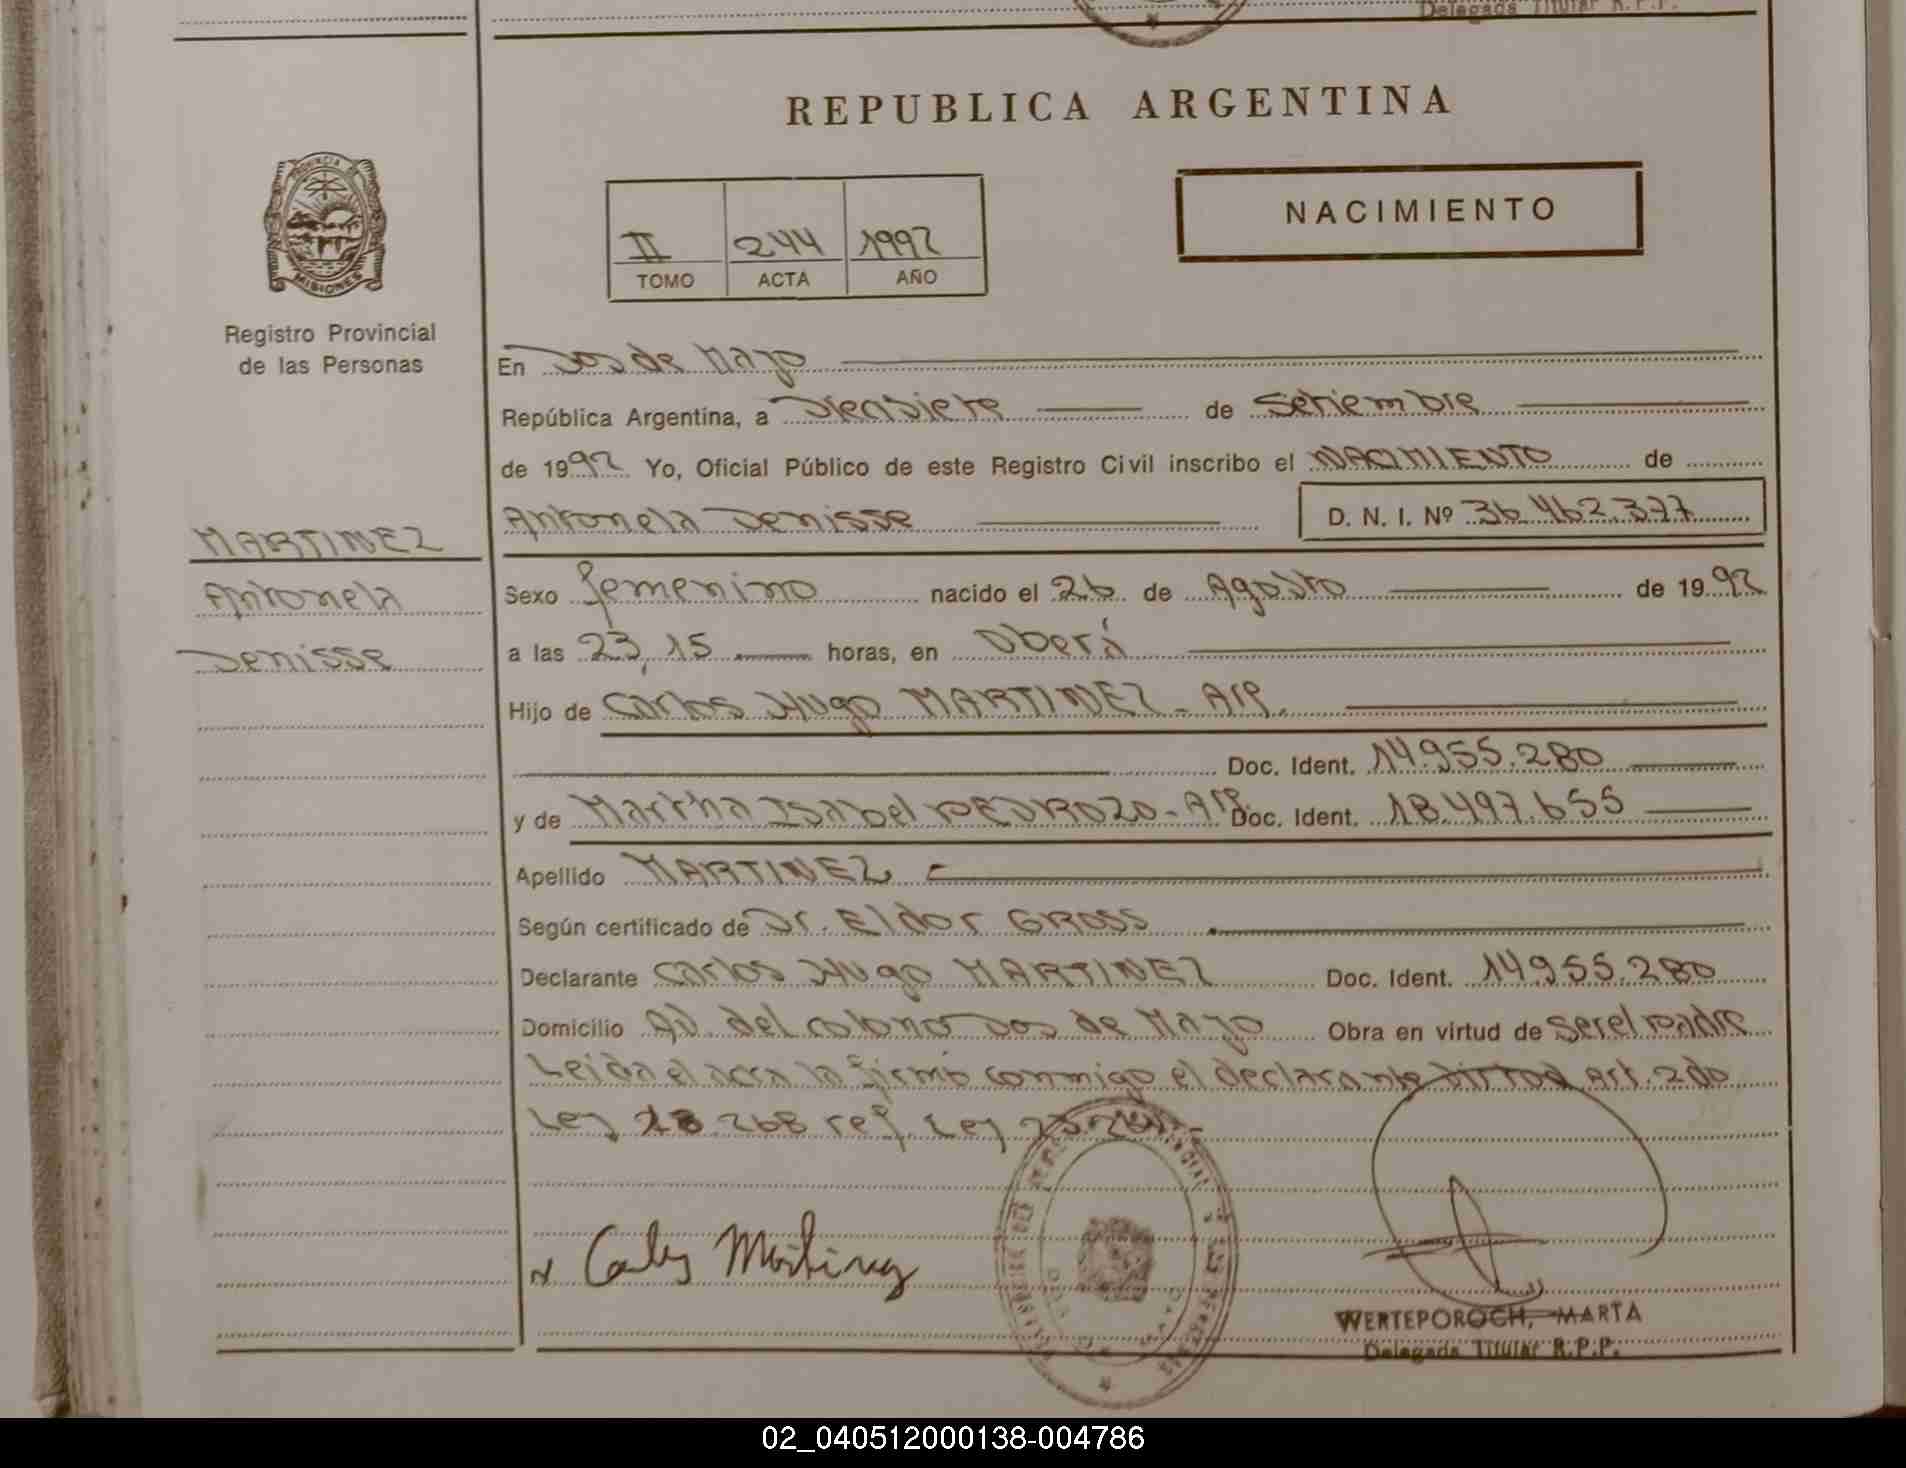 Delegada Titular R.P.P.
REPUBLICA ARGENTINA
PROVINCIA DE
MISIONES
Registro Provincial
de las Personas
II 244 1992
TOMO ACTA AÑO
NACIMIENTO
En Dos de Mayo
República Argentina, a Diecisiete de Setiembre
de 1992 Yo, Oficial Público de este Registro Civil inscribo el NACIMIENTO de
Antonela Denisse D. N. I. Nº 36.462.377
MARTINEZ
Antonela
Denisse
Sexo femenino nacido el 26 de Agosto de 1992
a las 23,15 horas, en Oberá
Hijo de Carlos Hugo MARTINEZ - Arg.
Doc. Ident. 14.955.280
y de Martha Isabel PEDROZO - Arg. Doc. Ident. 18.497.655
Apellido MARTINEZ
Según certificado de Dr. Eldor GROSS
Declarante Carlos Hugo MARTINEZ Doc. Ident. 14.955.280
Domicilio AV. del colono Dos de Mayo Obra en virtud de ser el padre
Leida el acta la firmó conmigo el declarante virtud Art. 2do
Ley 18.268 ref. Ley
Carlos Martinez
WERTEPOROCH, MARTA
Delegada Titular R.P.P.
02_040512000138-004786